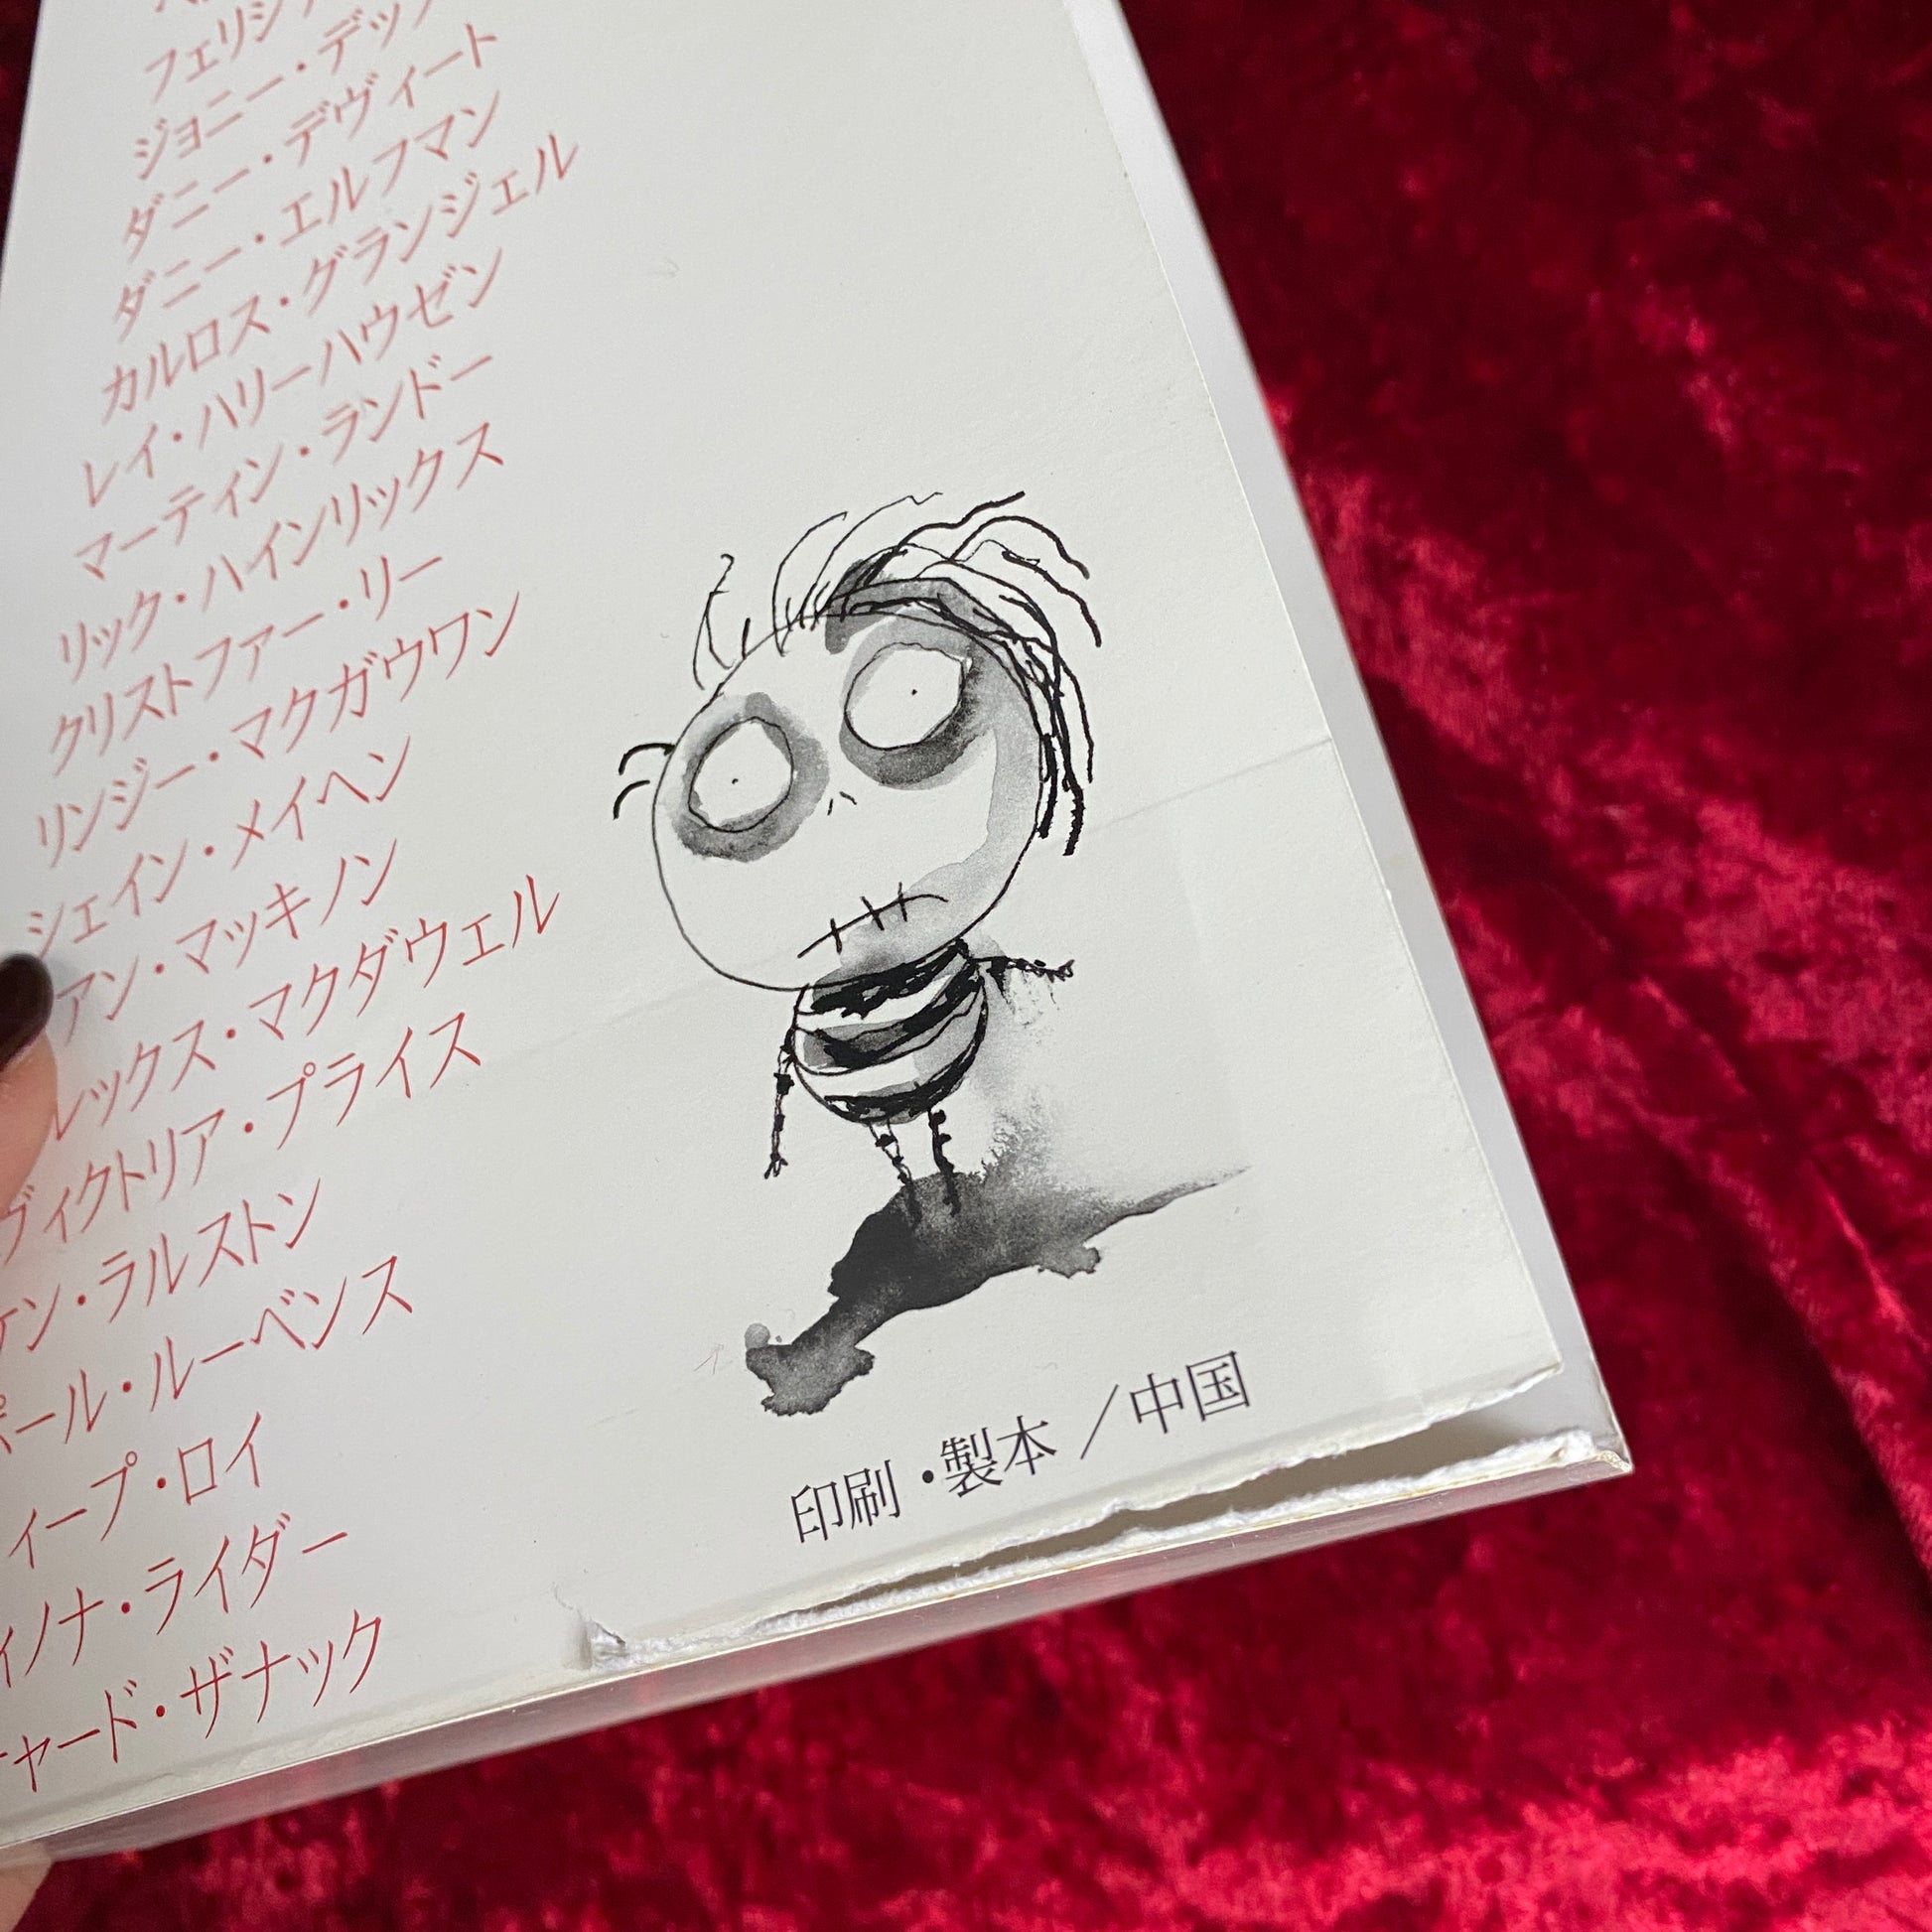 フェリシア
ジョニー・デップ
ダニー・デヴィート
ダニー・エルフマン
カルロス・グランジェル
レイ・ハリーハウゼン
マーティン・ランドー
リック・ハインリックス
クリストファー・リー
リンジー・マクガウワン
シェイン・メイヘン
アン・マッキノン
レックス・マクダウェル
ヴィクトリア・プライス
ケン・ラルストン
ポール・ルーベンス
ィープ・ロイ
ィノナ・ライダー
チャード・ザナック
印刷・製本／中国